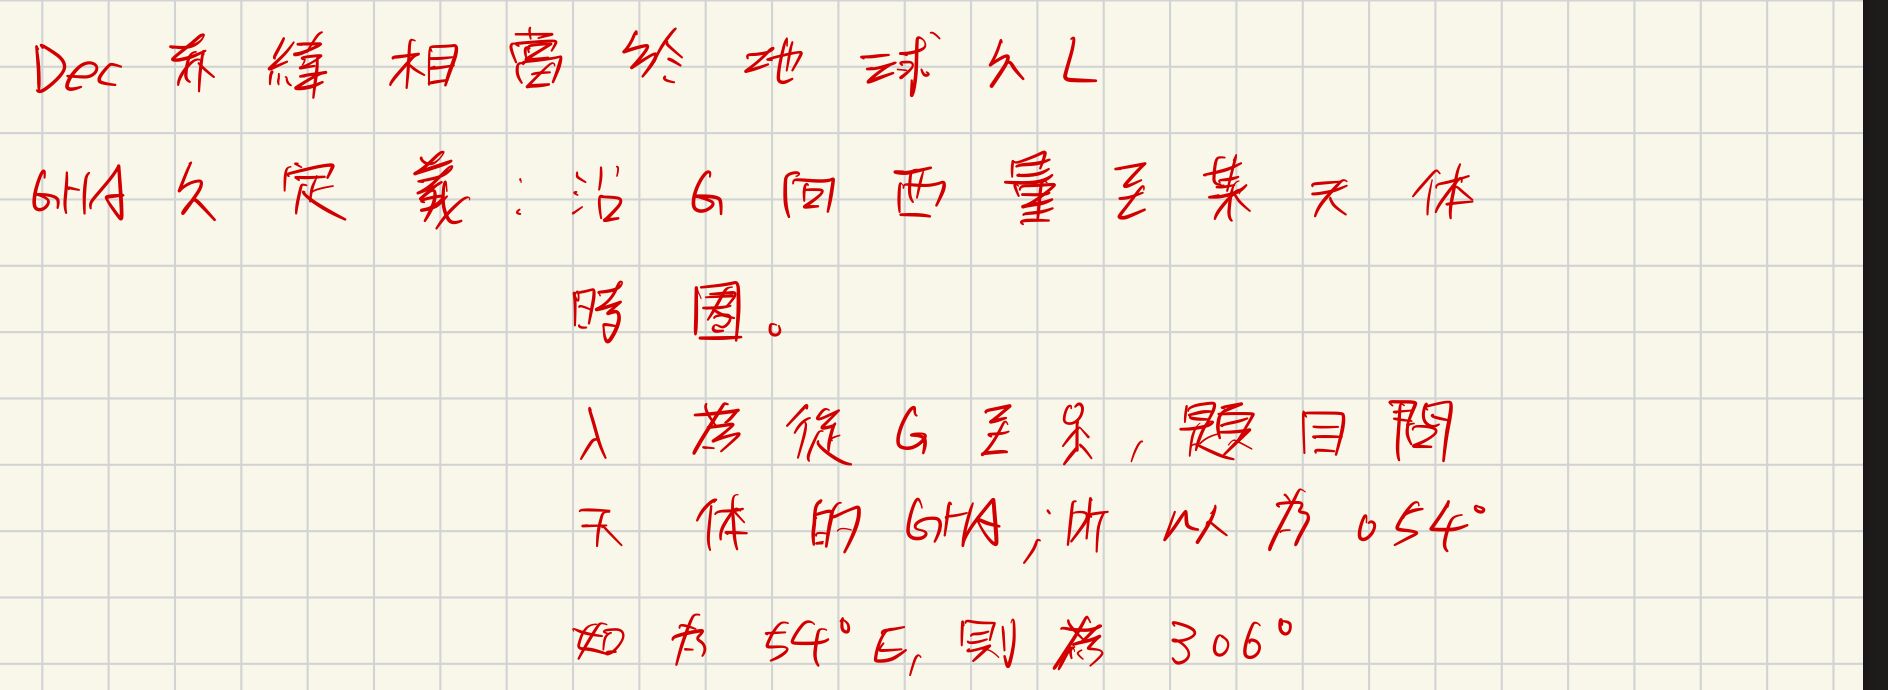 Dec 赤緯相當於地球久L
GHA 久定義:沿G向西量至某天体
時圈。
λ 為從G至,題目問
天体的GHA;所以為054°
如为54°E,則為306°